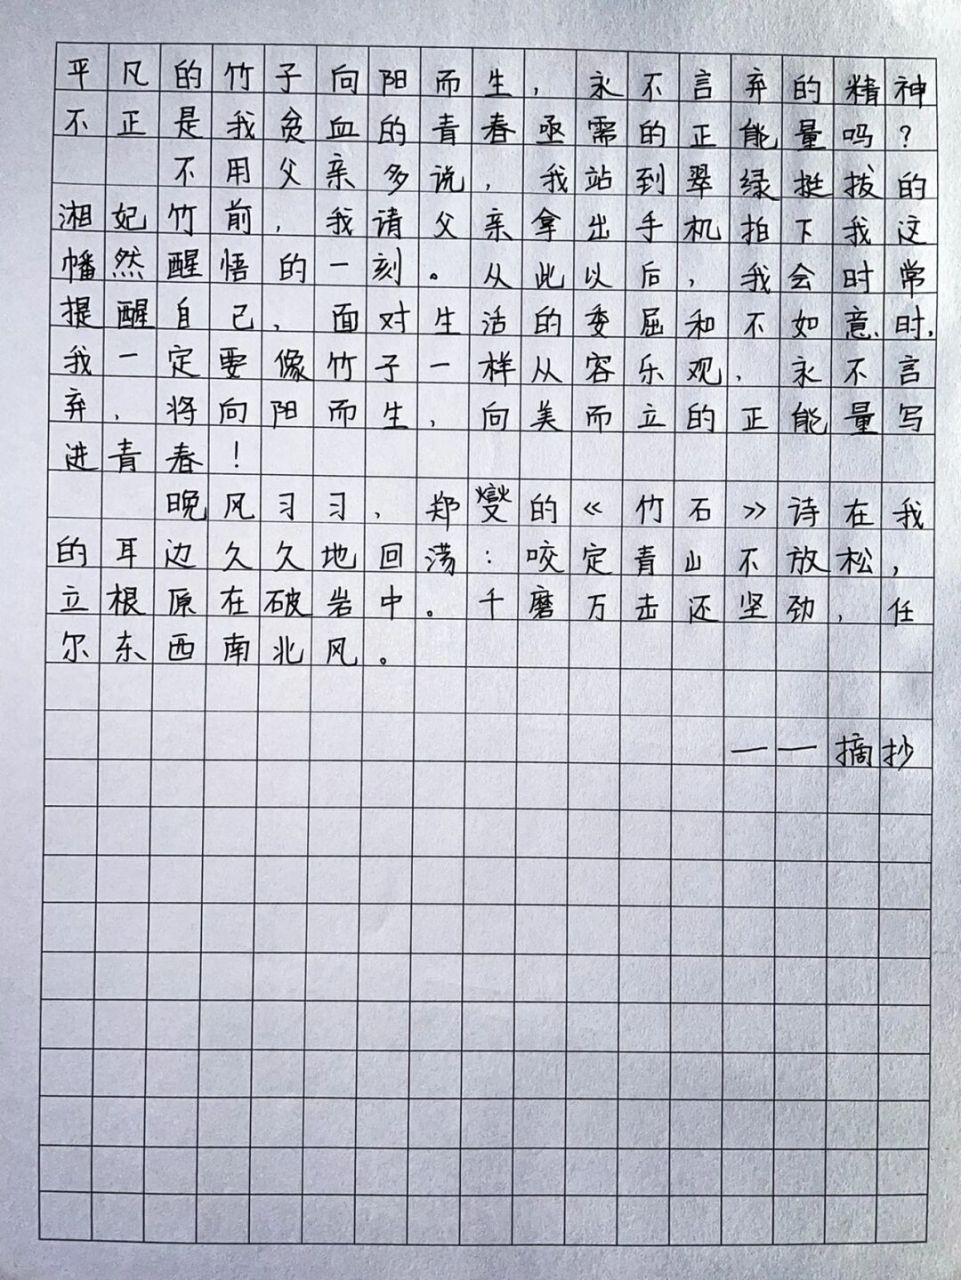 平凡的竹子向阳而生，永不言弃的精神
不正是我贫血的青春亟需的正能量吗？
不用父亲多说，我站到翠绿挺拔的
湘妃竹前，我请父亲拿出手机拍下我这
幡然醒悟的一刻。从此以后，我会时常
提醒自己，面对生活的委屈和不如意时，
我一定要像竹子一样从容乐观，永不言
弃，将向阳而生，向美而立的正能量写
进青春！
晚风习习，郑燮的《竹石》诗在我
的耳边久久地回荡：咬定青山不放松，
立根原在破岩中。千磨万击还坚劲，任
尔东西南北风。
——摘抄